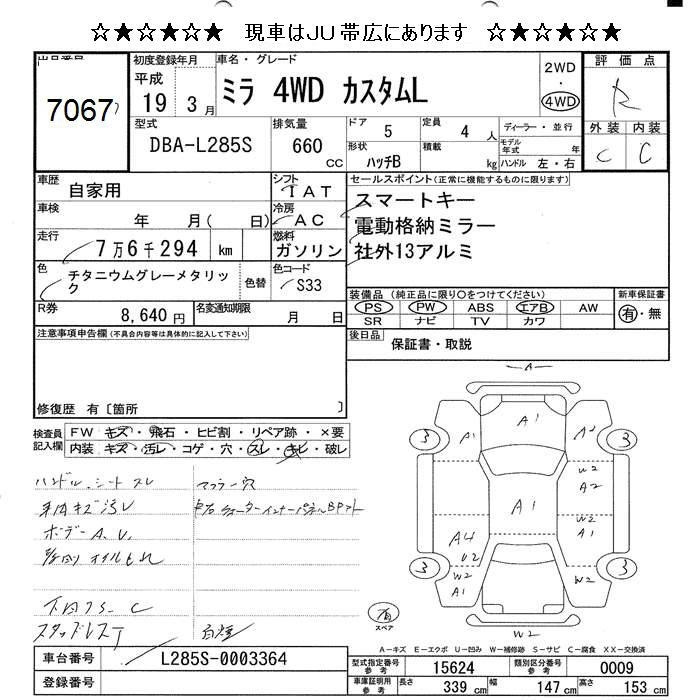 ☆★☆★☆★ 現車はJU帯広にあります ☆★☆★☆★
出品番号
7067
初度登録年月
平成
19 3月
車名・グレード
ミラ 4WD カスタムL
2WD
・
4WD
評価点
R
外装 内装
C C
型式
DBA-L285S
排気量
660
CC
ドア 5
形状
ハッチB
定員 4 人
積載 kg
ディーラー・並行
モデル年式 年
ハンドル 左・右
車歴
自家用
シフト
IAT
車検
年 月( 日)
冷房
AC
走行
7万6千294 km
燃料
ガソリン
色
チタニウムグレーメタリック
色替
色コード
S33
R券
8,640円
名変通知期限
月 日
セールスポイント(正常に機能するものに限ります)
スマートキー
電動格納ミラー
社外13アルミ
装備品 (純正品に限り○をつけてください)
PS PW ABS エアB AW
SR ナビ TV カワ
新車保証書
有・無
後日品
保証書・取説
注意事項申告欄(不具合内容等は具体的に記入して下さい)
修復歴 有〔箇所 〕
検査員記入欄
FW キズ・飛石・ヒビ割・リペア跡・×要
内装 キズ・汚レ・コゲ・穴・スレ・キレ・破レ
ハンドル、シート スレ
マフラー穴
内装キズ汚レ
ボデー A.U.
オイルもれ
下回りS-C
スタッドレスT
白煙
A
A1
A1
A2
3
3
W2
A2
A1
W2
A1
A4
U2
W2
A1
W2
3
3
W2
有
スペア
A-キズ E-エクボ U-凹み W-補修跡 S-サビ C-腐食 XX-交換済
車台番号
L285S-0003364
登録番号
型式指定番号
参考
15624
類別区分番号
参考
0009
車庫証明用
参考
長さ 339 cm
幅 147 cm
高さ 153 cm